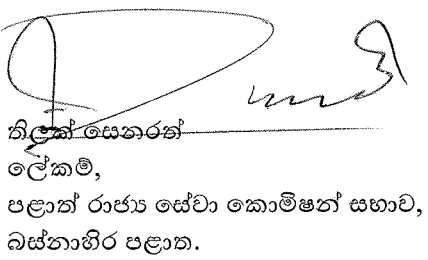 තිලක් සෙනරත්
ලේකම්,
පළාත් රාජ්‍ය සේවා කොමිෂන් සභාව,
බස්නාහිර පළාත.